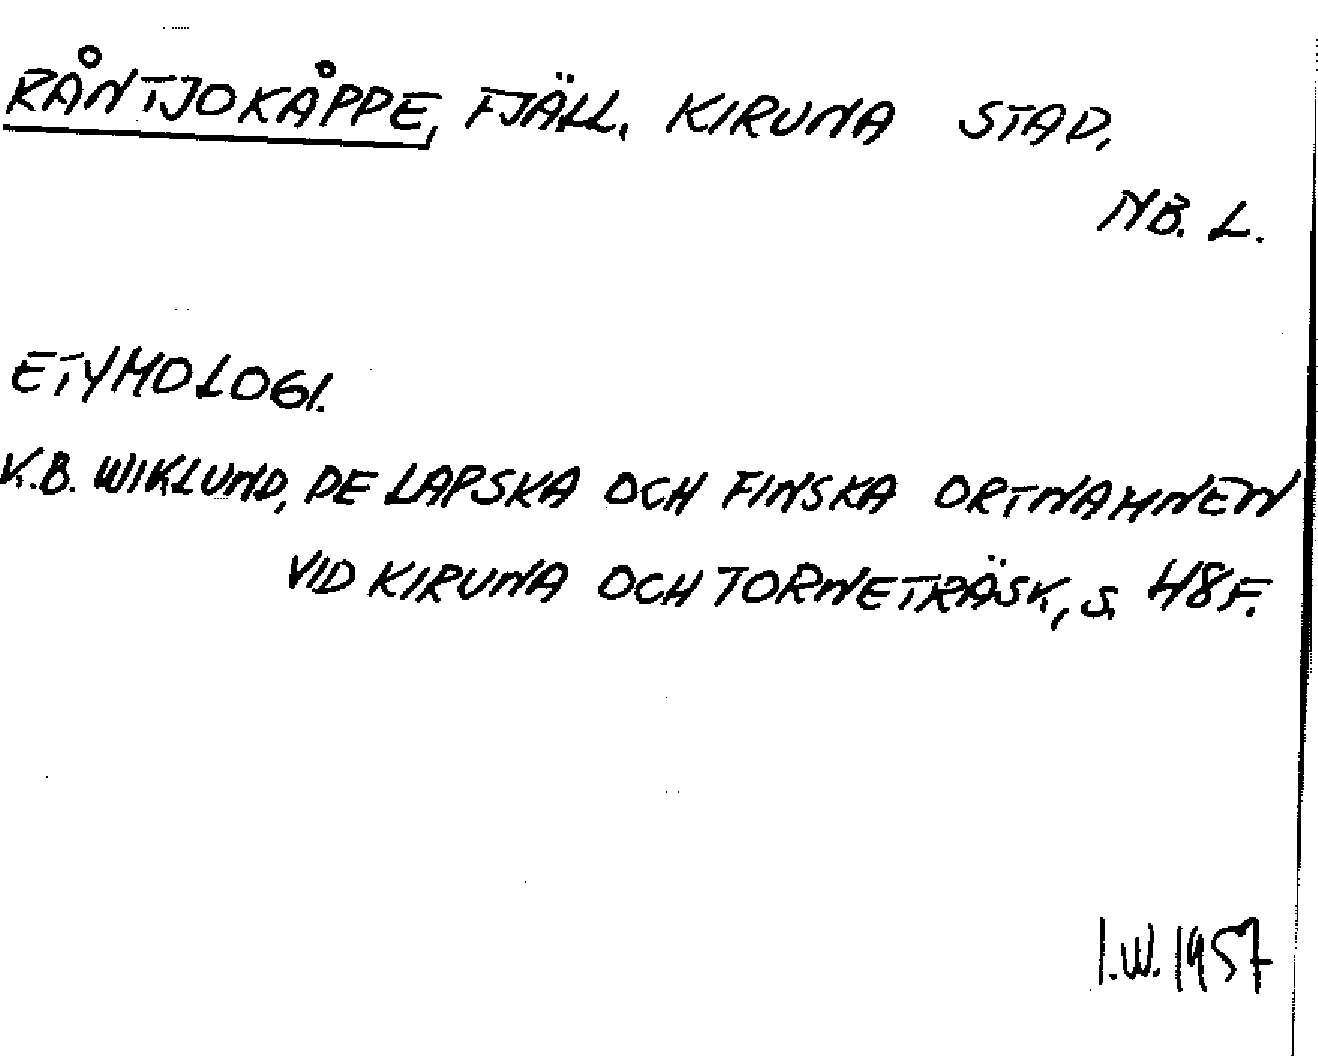 RÅNTJOKÅPPE, FJÄLL. KIRUNA STAD,
NB. L.
ETYMOLOGI.
K.B. WIKLUND, DE LAPSKA OCH FINSKA ORTNAMNEN
VID KIRUNA OCH TORNETRÄSK, S. 48 F.
I.W. 1957